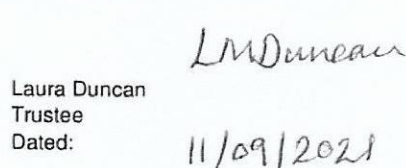 LMDuncan
Laura Duncan
Trustee
Dated: 11/09/2021